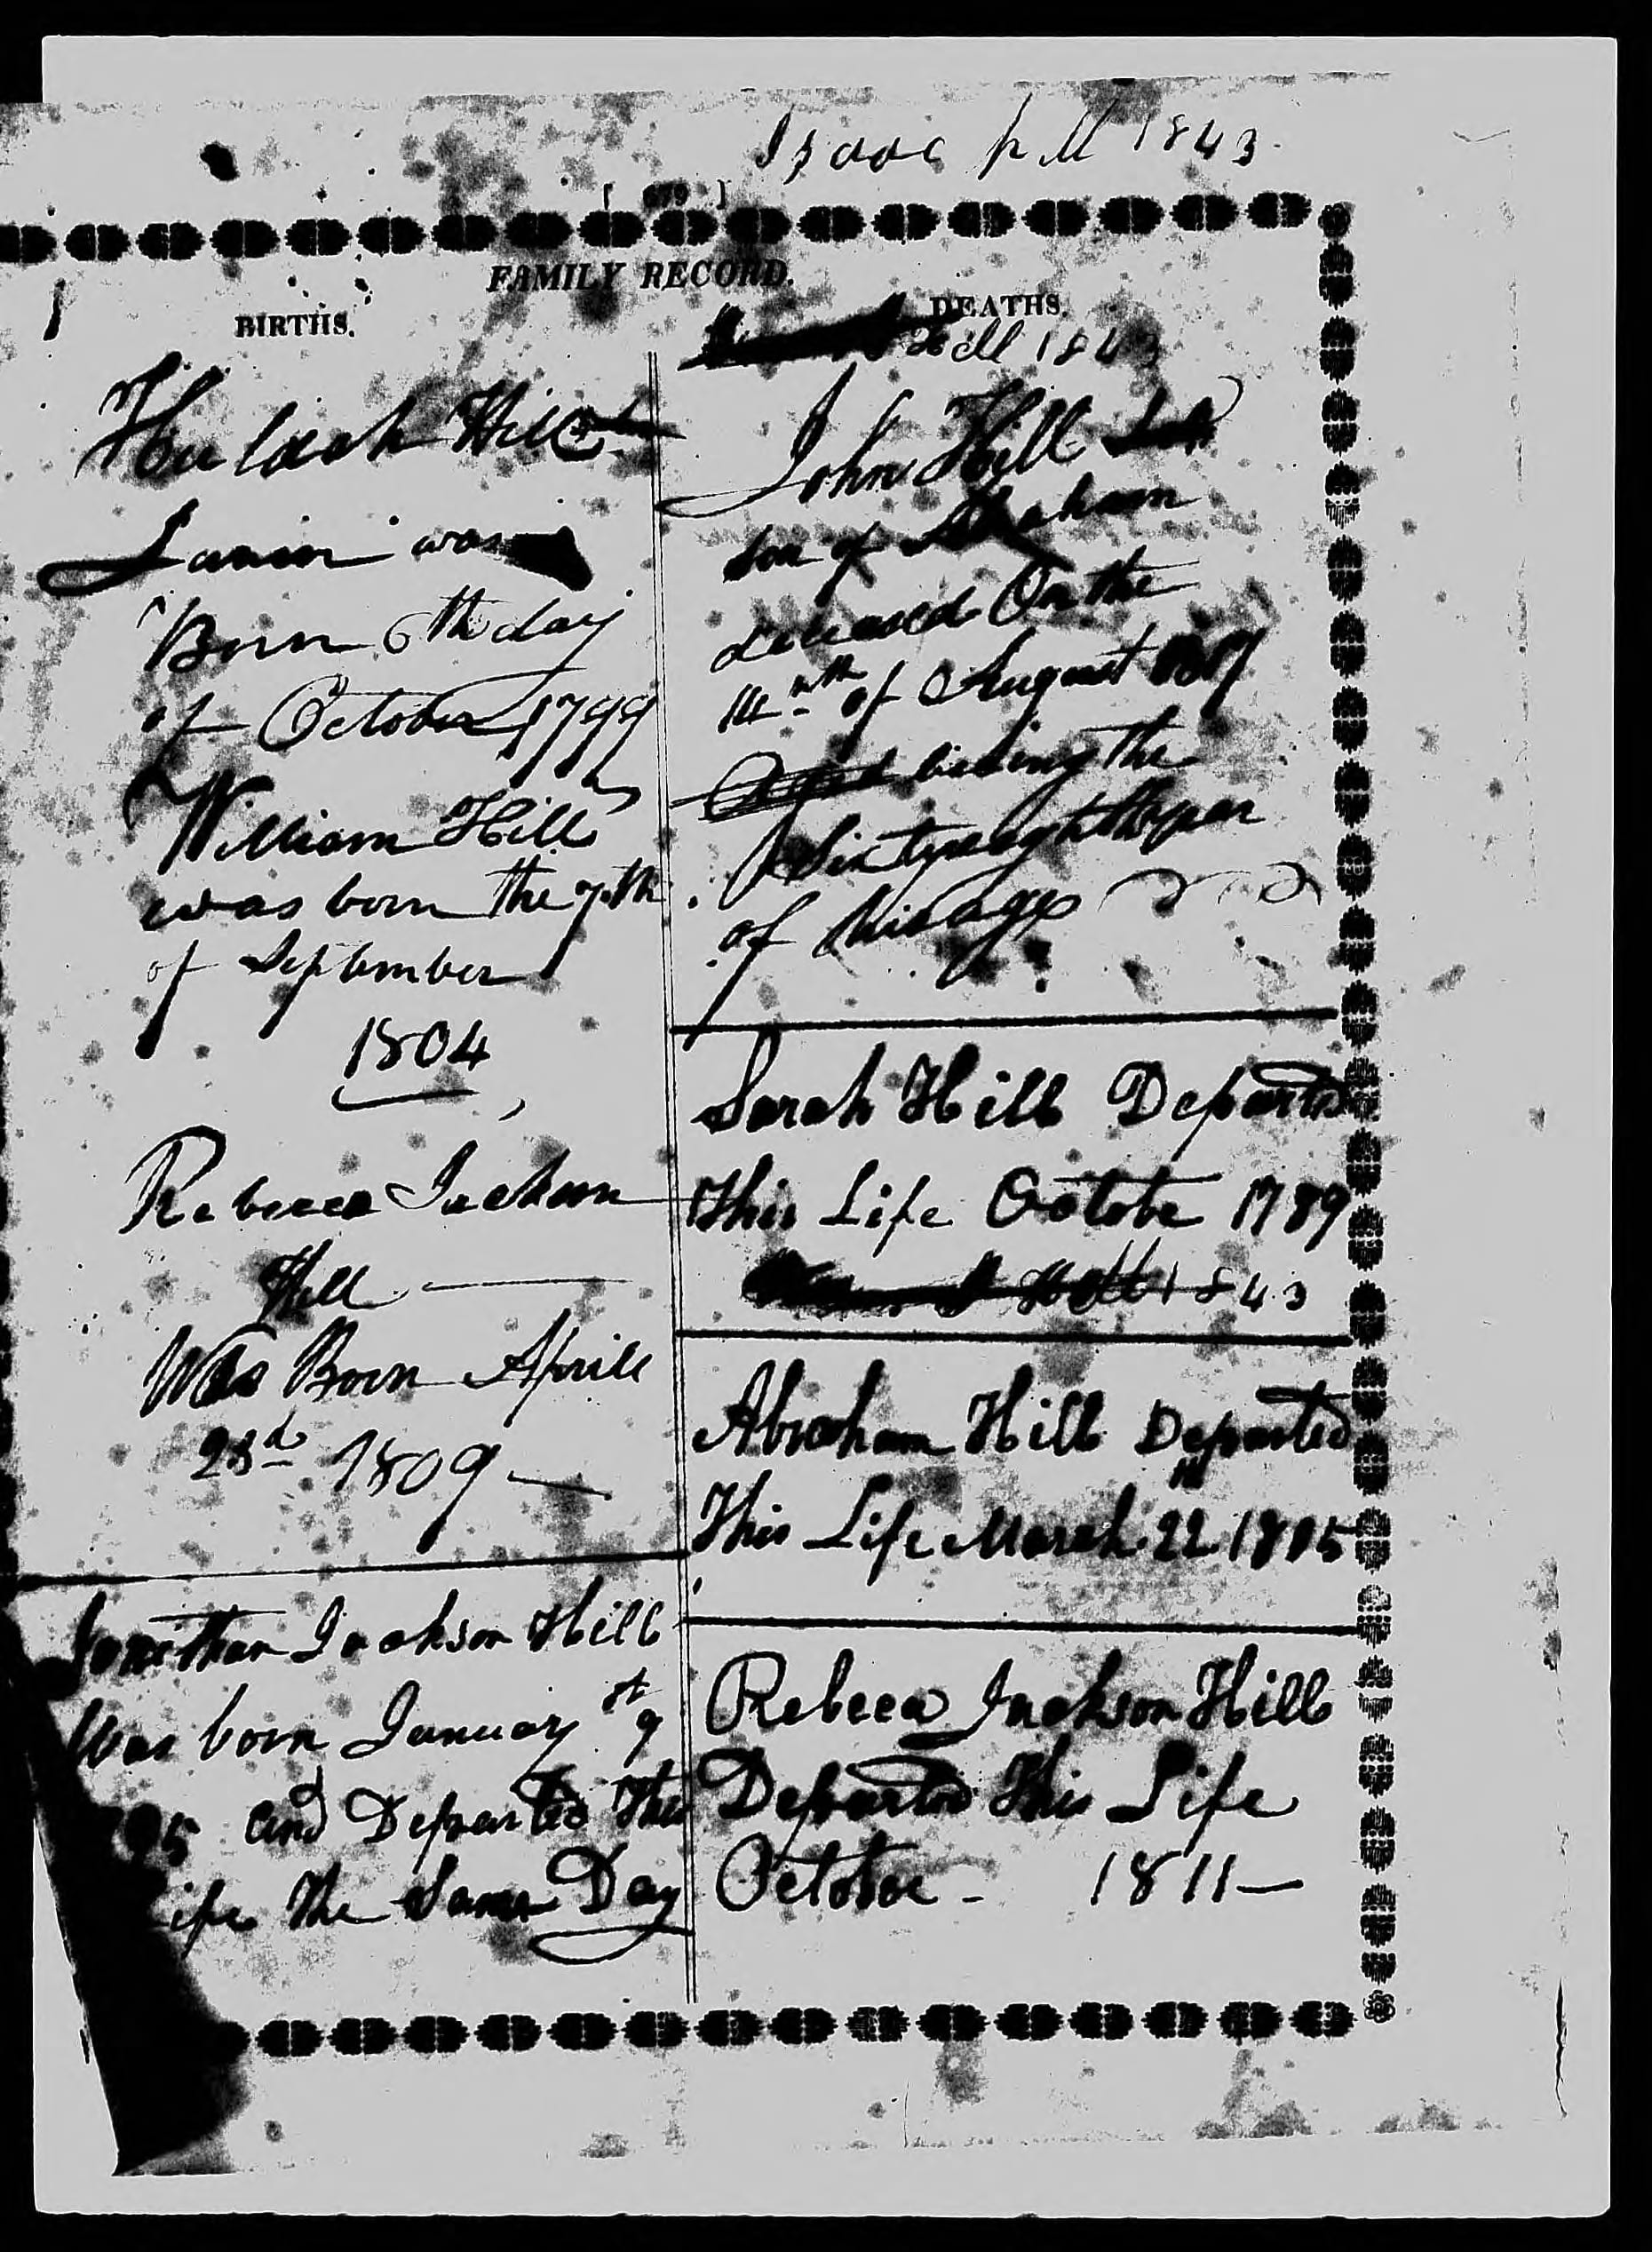 Isaac hill 1843
FAMILY RECORD.
BIRTHS.
Huldah Hill
Junior was
Born 6th day
of October 1799
William Hill
was born the 7th
of September
1804
Rebecca Jackson
Hill
Was Born Aprill
23d 1809
Jonathan Jackson Hill
Was born January 9
95 and Departed This
Life The Same Day
DEATHS.
Hill 1843
John Hill
son of Abraham
deceased On the
14th of August
beeing the
Sixty eighth year
of his age
Sarah Hill Departed
This Life Octobe 1789
Hill 1843
Abraham Hill Departed
This Life March 22 1805
Rebeca Jackson Hill
Departed This Life
October - 1811